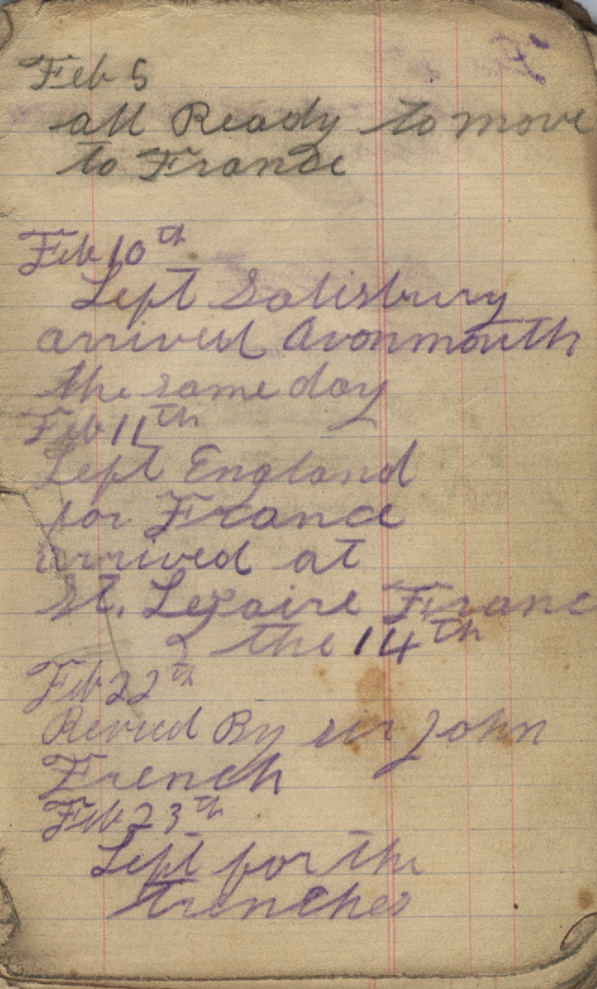 Feb 5
all Ready to move
to France
Feb 10th
Left Salisbury
arrived Avonmouth
the same day
Feb 11th
Left England
for France
arrived at
St. France
the 14th
Feb 22th
By sir John
French
Feb 23th
Left for the
trenches